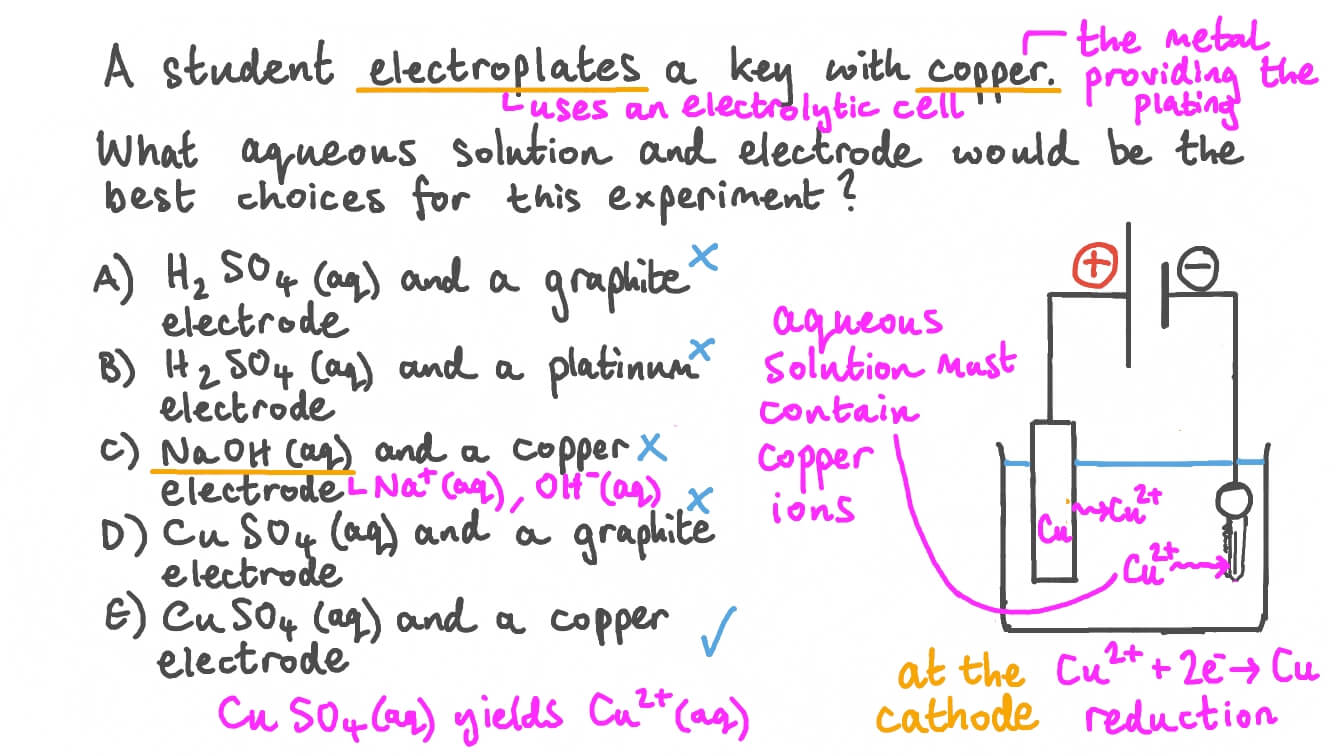 A student electroplates a key with copper.
the metal
providing the
plating
uses an electrolytic cell
What aqueous solution and electrode would be the
best choices for this experiment?
A) H₂SO₄ (aq) and a graphite x
electrode
B) H₂SO₄ (aq) and a platinum x
electrode
C) NaOH (aq) and a copper x
electrode Na⁺ (aq), OH⁻ (aq)
D) CuSO₄ (aq) and a graphite x
electrode
E) CuSO₄ (aq) and a copper ✓
electrode
CuSO₄ (aq) yields Cu²⁺ (aq)
aqueous
solution must
contain
copper
ions
+
−
Cu → Cu²⁺
Cu²⁺ →
at the
cathode
Cu²⁺ + 2e⁻ → Cu
reduction